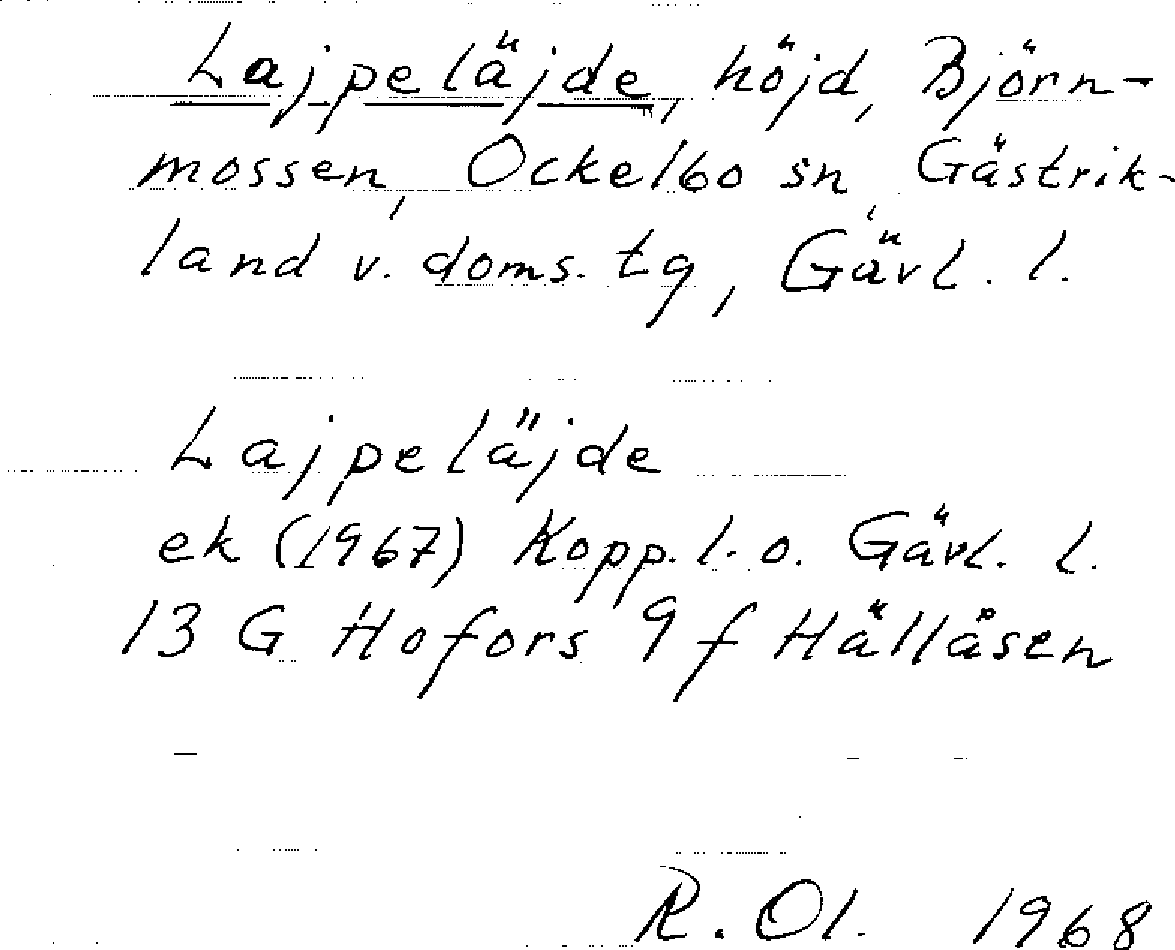 Lajpeläjde, höjd, Björn-
mossen, Ockelbo sn, Gästrik-
land v. doms. tg, Gävl. l.
Lajpeläjde
ek (1967) Kopp. l. o. Gävl. l.
13 G Hofors 9 f Hällåsen
R. Ol. 1968